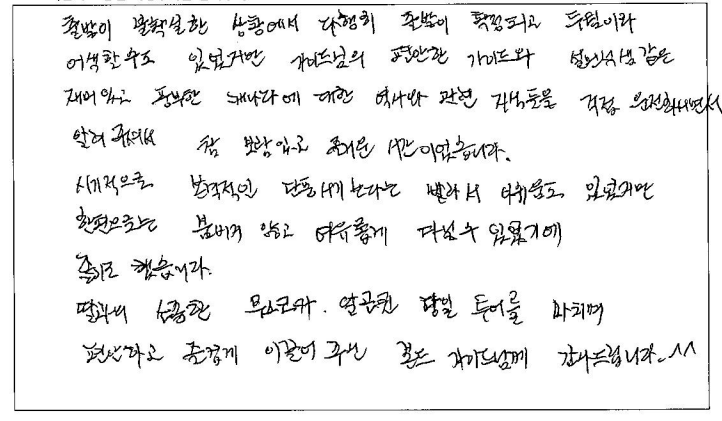 출발이 불확실한 상황에서 다행히 출발이 확정되고 두팀이라
어색할수도 있었지만 가이드님의 편안한 가이드와 설민석샘 같은
재미있고 풍부한 캐나다에 대한 역사와 관련 지식들을 직접 운전하시면서
알려 주셔서 참 보람있고 즐거운 시간이었습니다.
시기적으로 본격적인 단풍시기 보다는 빨라서 아쉬움도 있었지만
한편으로는 붐비지 않고 여유롭게 다닐수 있었기에
좋기도 했습니다.
딸과의 소중한 무스코카. 알곤퀸 당일 투어를 마치며
편안하고 즐겁게 이끌어 주신 가이드님께 감사드립니다.^^